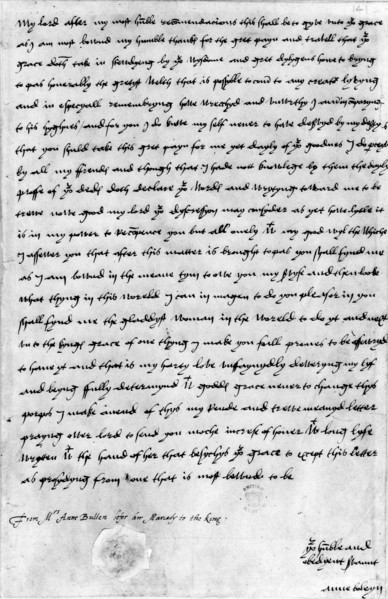 My lord after my most humble recommendacions this shall be to gyve unto yor grace
as I am most bownd my humble thanks for the gret payn and travell that yor
grace doth take in steudyeng by yor wysdome and gret dylygens howe to bryng
to pas honerably the gretyst welth that is possyble to com to any creator lyvyng
and in especyall remembryng howe wrecchyd and unwrthy I am in comparyng
to his hyghnes and for you I do knowe my self never to have deservyd by my desertes
that you shuld take this gret payn for me yet dayly of yor goodnes I do perceyve
by all my ffrends and though that I hade not knowlege by them the dayly
proffe of yor deds doth declare yor words and wrytyng toward me to be
trewe nowe good my lord yor dyscressyon may consyder as yet howe lytle it
is in my power to recompence you but all onely wt my good wyl the whiche
I assewer you that after this matter is brought to pas you shall fynd me
as I am bownd in the meane tym to owe you my servyse and then looke
what thyng in this woreld I can inmagen to do you pleasor in you
shall fynd me the gladdyst woman in the woreld to do yt and next
unto the kyngs grace of one thyng I make you full promes to be assewryd
to have yt and that is my harty love unfaynydly deweryng my lyf
and beyng fully determynd wt godds grace never to change thys
porpos I make an end of thys my reude and trewe meanyd letter
prayng ower lord to send you moche increse of honer wt long lyfe
wrytten wt the hand of her that besychys yor grace to except this letter
as prosydyng from one that is most bownde to be
From Mrs Anne Bullen before her Mariadg to the King.
yor humble and
obedyent servant
anne boleyn